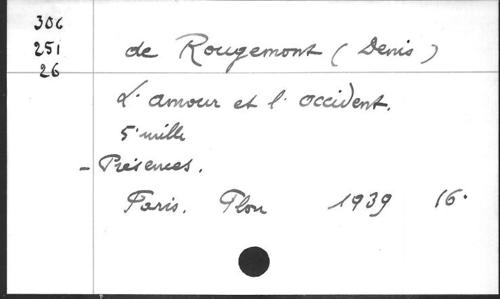 306
251
26
de Rougemont (Denis)
L'amour et l'occident.
5e mille
- Présences.
Paris. Plon 1939 16°